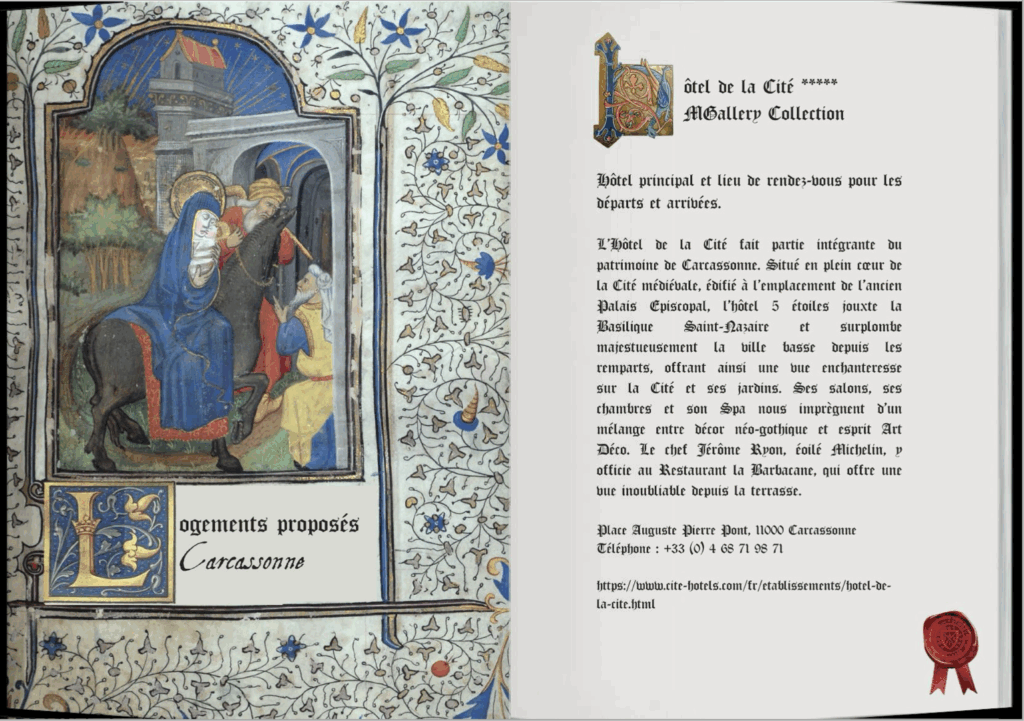 Logements proposés
Carcassonne
Hôtel de la Cité *****
MGallery Collection
Hôtel principal et lieu de rendez-vous pour les
départs et arrivées.
L'Hôtel de la Cité fait partie intégrante du
patrimoine de Carcassonne. Situé en plein cœur de
la Cité médiévale, édifié à l'emplacement de l'ancien
Palais Episcopal, l'hôtel 5 étoiles jouxte la
Basilique Saint-Nazaire et surplombe
majestueusement la ville basse depuis les
remparts, offrant ainsi une vue enchanteresse
sur la Cité et ses jardins. Ses salons, ses
chambres et son Spa nous imprègnent d'un
mélange entre décor néo-gothique et esprit Art
Déco. Le chef Jérôme Ryon, éoilé Michelin, y
officie au Restaurant la Barbacane, qui offre une
vue inoubliable depuis la terrasse.
Place Auguste Pierre Pont, 11000 Carcassonne
Téléphone : +33 (0) 4 68 71 98 71
https://www.cite-hotels.com/fr/etablissements/hotel-de-
la-cite.html